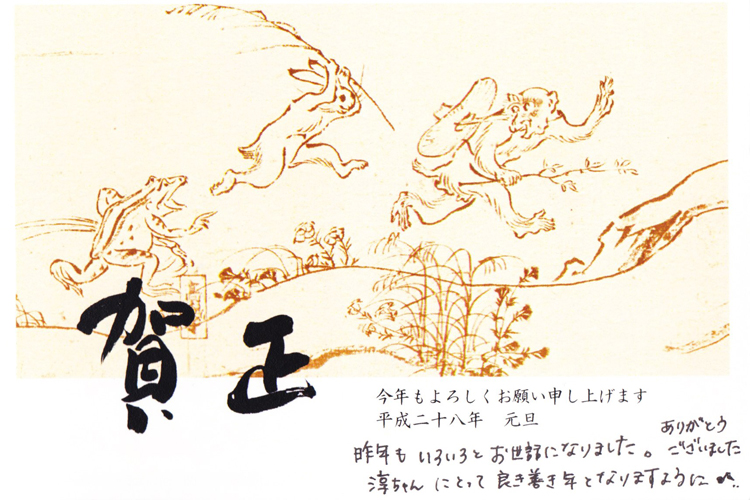 賀正
今年もよろしくお願い申し上げます
平成二十八年　元旦
昨年もいろいろとお世話になりました。
ありがとう
ございました
淳ちゃんにとって良き年となりますように